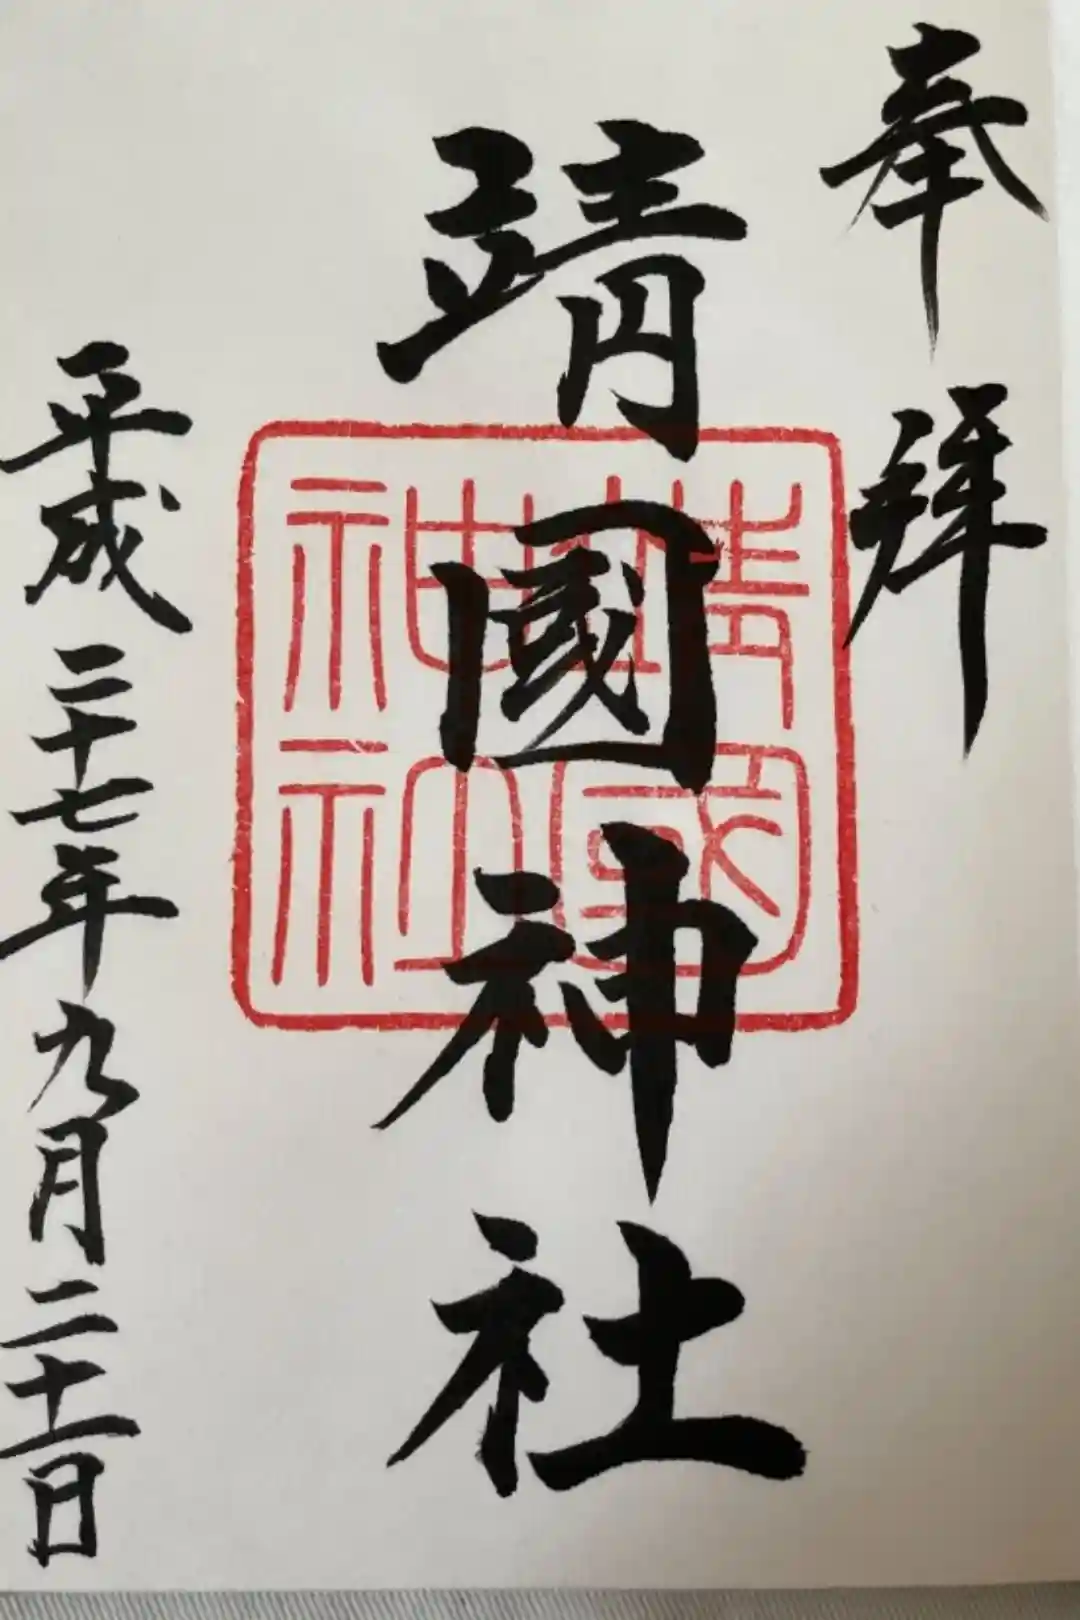 奉拜
靖國神社
靖國神社
平成二十七年九月二十一日